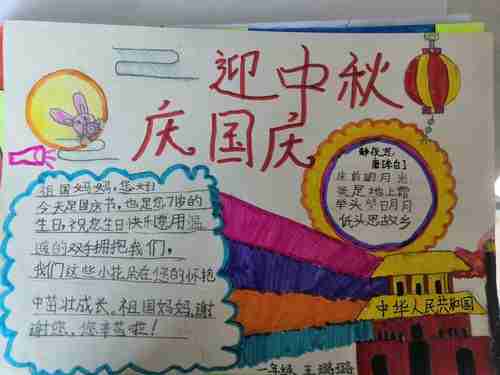 迎中秋
庆国庆
静夜思
唐[李白]
床前明月光
疑是地上霜
举头望明月
低头思故乡
祖国妈妈,您好!
今天是国庆节,也是您71岁的
生日,祝您生日快乐!您用温
暖的双手拥抱我们,
我们这些小花朵在您的怀抱
中茁壮成长。祖国妈妈,谢
谢您,您辛苦啦!
中华人民共和国
一年级 王璐璐